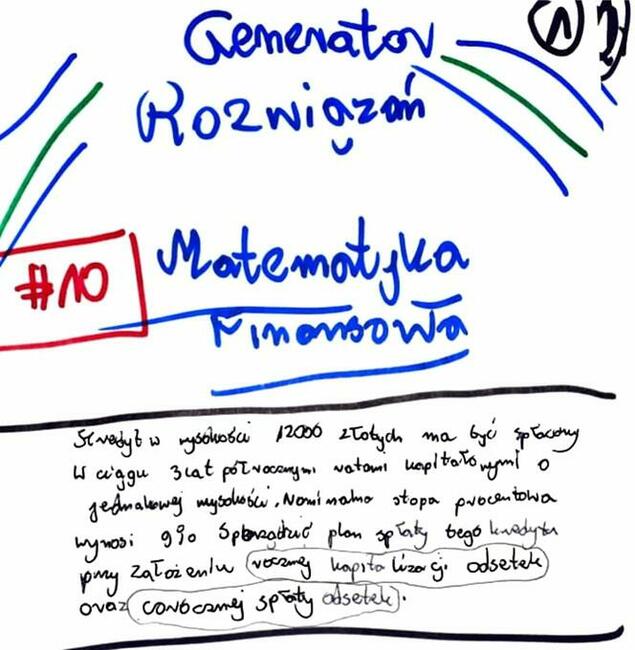 Generator
1
Rozwiązań
#10
Matematyka
Finansowa
Kredyt w wysokości 12000 złotych ma być spłacony
w ciągu 3 lat półrocznymi ratami kapitałowymi o
jednakowej wysokości. Nominalna stopa procentowa
wynosi 9% Sporządzić plan spłaty tego kredytu
przy założeniu rocznej kapitalizacji odsetek
oraz corocznej spłaty odsetek.